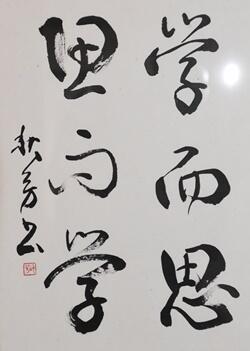 学而思
思而学
秋芳书